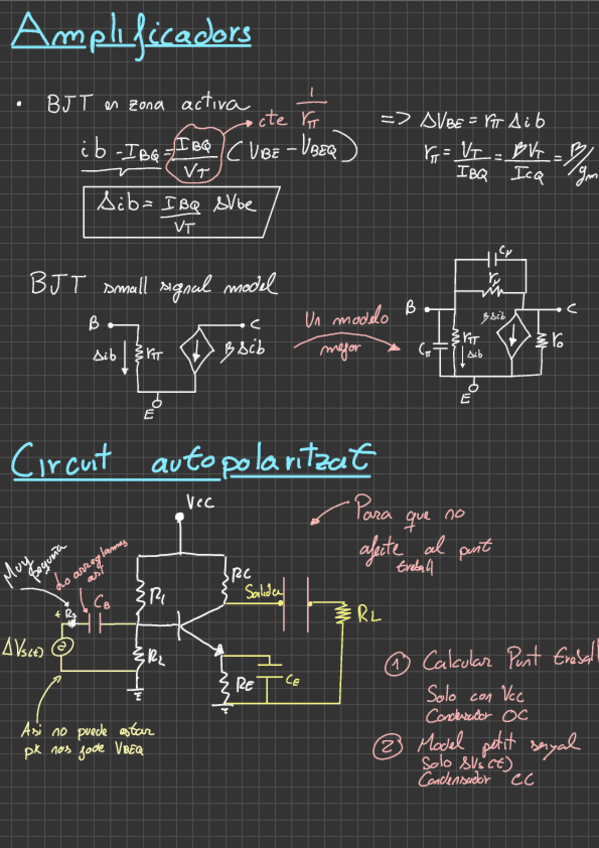 Amplificadors
• BJT en zona activa
ib - IBQ = IBQ/VT (VBE - VBEQ)
cte 1/rπ
=> ΔVBE = rπ Δib
rπ = VT/IBQ = βVT/ICQ = β/gm
Δib = IBQ/VT ΔVbe
BJT small signal model
B
C
Δib
rπ
βΔib
E
Un modelo
mejor
Cμ
rμ
B
C
βΔib
Cπ
rπ
Δib
ro
E
Circuit autopolaritzat
Vcc
Para que no
afecte al punt
treball
Muy pequeña
Lo arreglamos
así
+ Rs
CB
R1
RC
Salida
RL
ΔVs(t)
R2
RE
CE
Asi no puede estar
pk nos jode VBEQ
1 Calcular Punt treball
Solo con Vcc
Condensador OC
2 Model petit senyal
Solo ΔVs(t)
Condensador CC